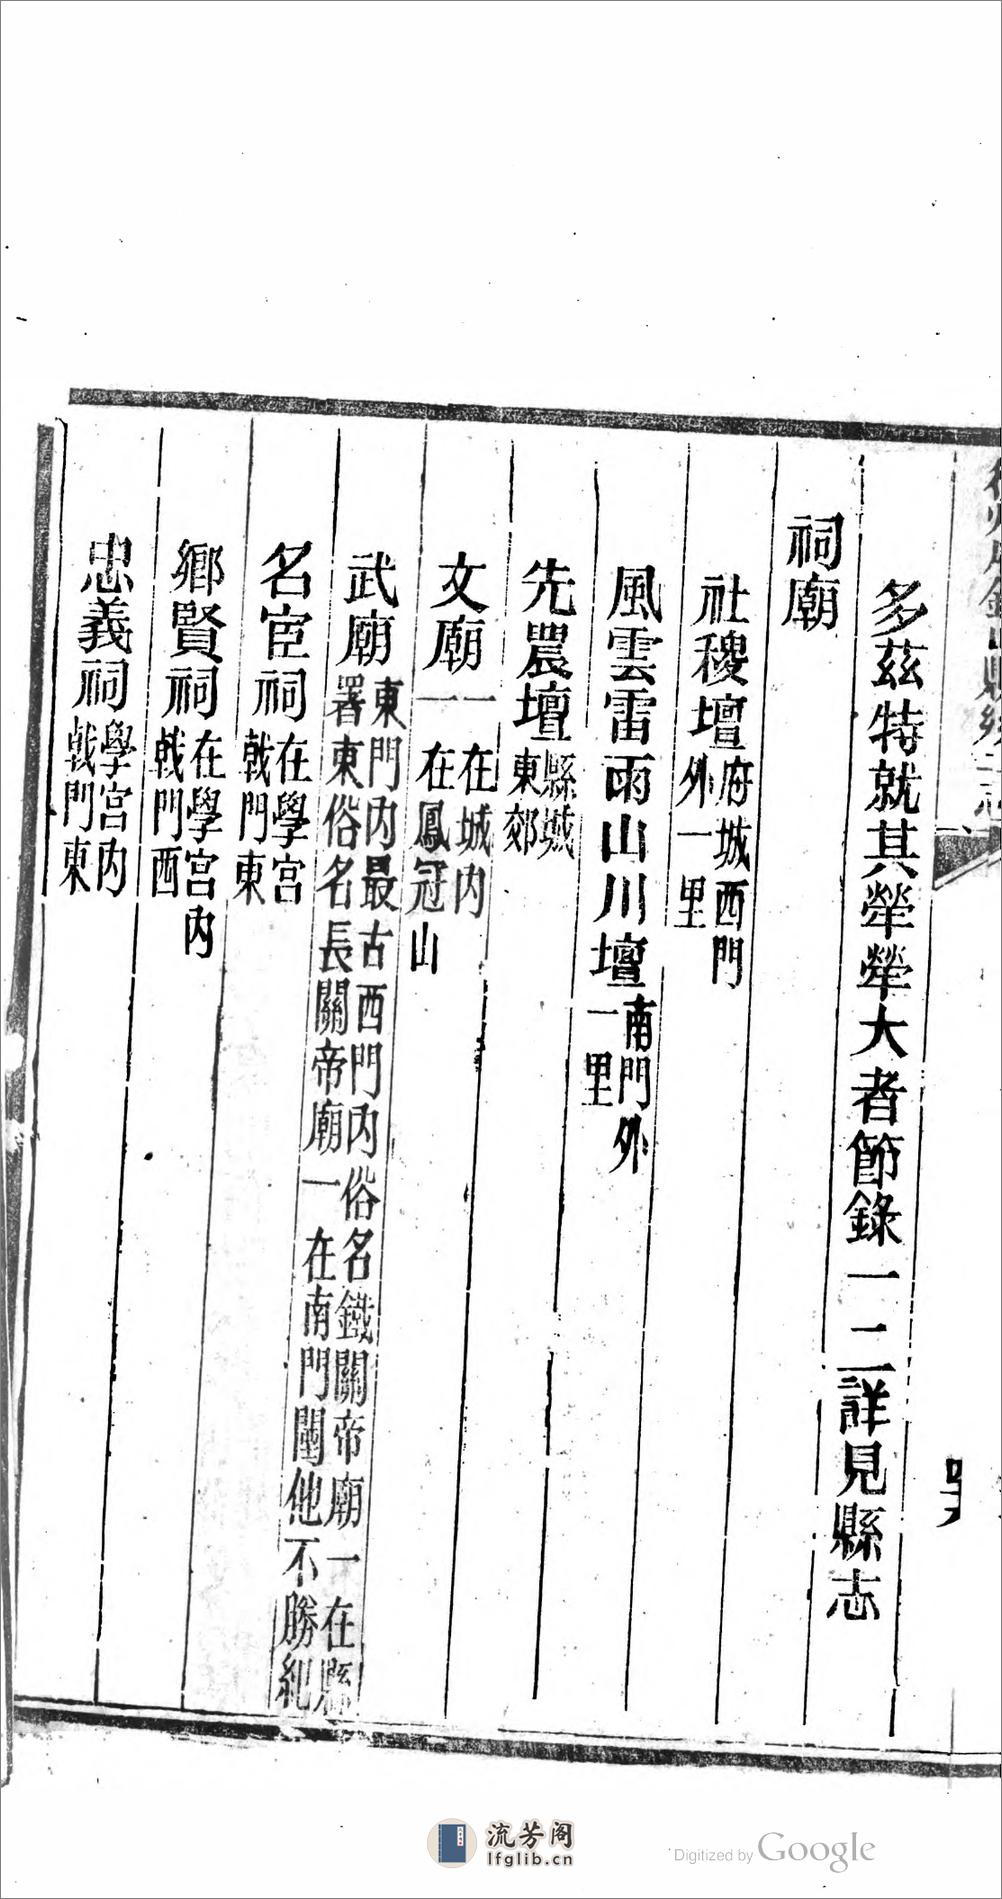 多茲特就其犖犖大者節錄一二詳見縣志
祠廟
社稷壇府城西門外一里
風雲雷雨山川壇南門外一里
先農壇縣城東郊
文廟一在城内一在鳳冠山
武廟東門内最古西門内俗名鐵關帝廟一在縣署東俗名長關帝廟一在南門闉他不勝紀
名宦祠在學宮戟門東
鄉賢祠在學宮内戟門西
忠義祠學宮内戟門東
流芳阁
lfglib.cn
Digitized by Google